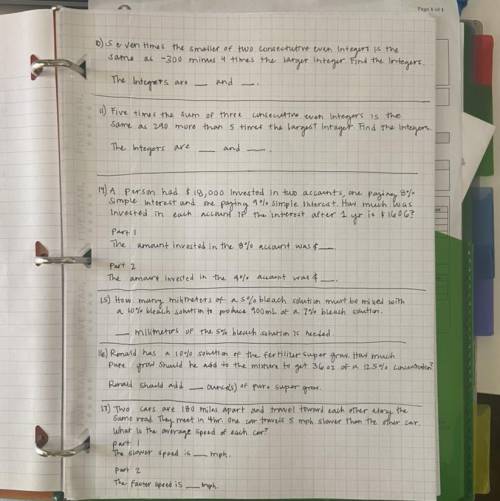 Page 1 of 1
10) Seven times the smaller of two consecutive even integers is the
same as -300 minus 4 times the larger integer. Find the integers.
The integers are __ and __.
11) Five times the sum of three consecutive even integers is the
same as 290 more than 5 times the largest integer. Find the integers.
The integers are __ and __.
14) A person had $18,000 invested in two accounts, one paying 8%
simple interest and one paying 9% simple interest. How much was
invested in each account if the interest after 1 yr is $1606?
Part 1
The amount invested in the 8% account was $__.
Part 2
The amount invested in the 9% account was $__.
15) How many milimeters of a 5% bleach solution must be mixed with
a 10% bleach solution to produce 900mL of a 7% bleach solution.
__ milimeters of the 5% bleach solution is needed.
16) Ronald has a 10% solution of the fertilizer super grow. How much
Pure grow should he add to the mixture to get 36 oz of a 12.5% concentration?
Ronald should add __ ounce(s) of pure super grow.
17) Two cars are 180 miles apart and travel toward each other along the
same road. They meet in 4hr. One car travels 5 mph slower than the other car.
What is the average speed of each car?
Part 1
The slower speed is __ mph.
Part 2
The faster speed is __ mph.